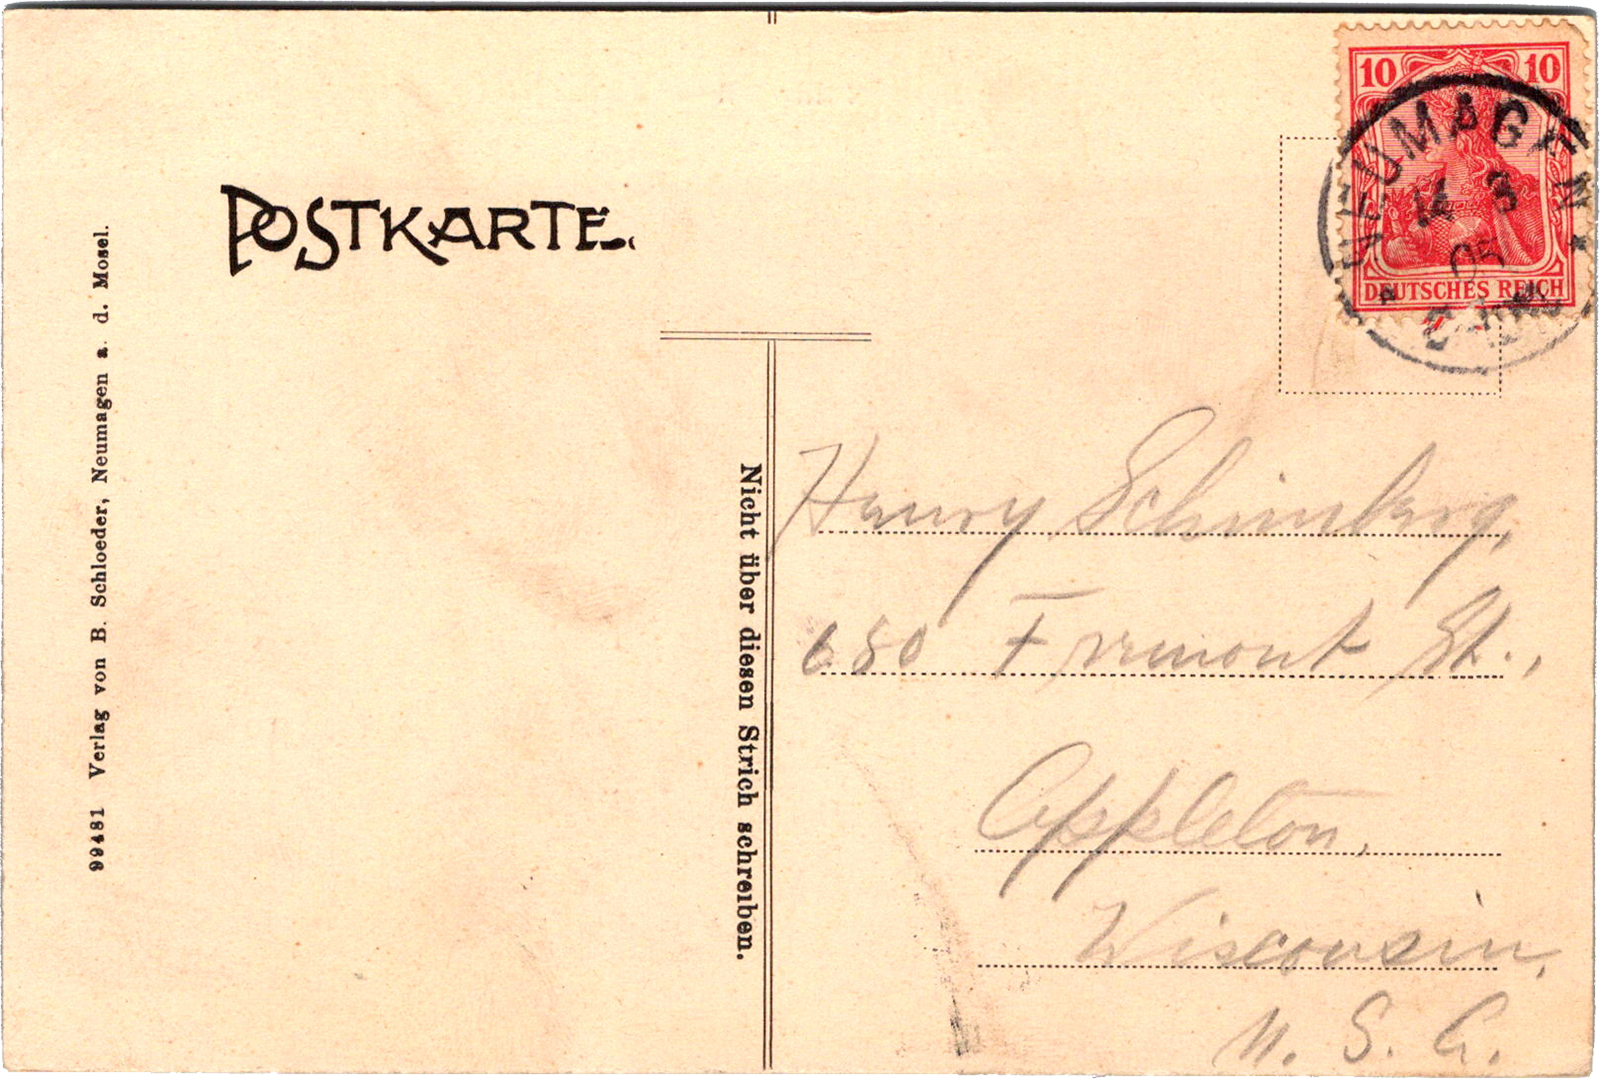 POSTKARTE.
10 10
DEUTSCHES REICH
NEUMAGEN
14 8
05
99481 Verlag von B. Schloeder, Neumagen a. d. Mosel.
Nicht über diesen Strich schreiben.
Henry Schimberg,
680 Fremont St.,
Appleton,
Wisconsin,
U. S. A.